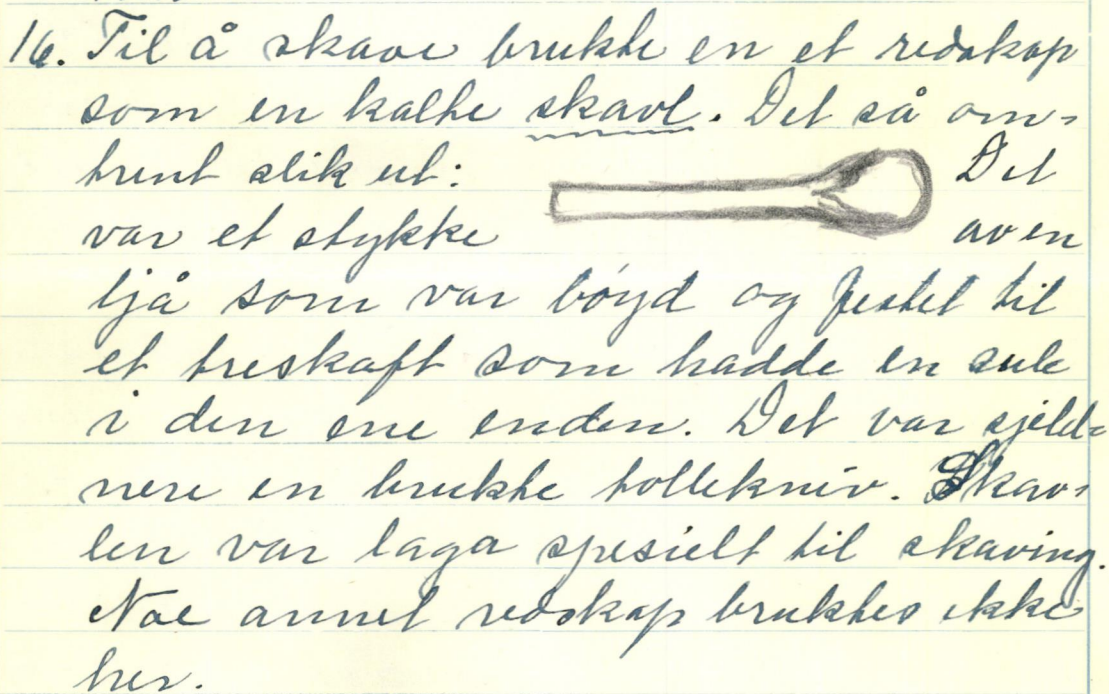 16. Til å skave brukte en et redskap
som en kalte skavl. Det så om=
trent slik ut: Det
var et stykke av en
ljå som var bøyd og festet til
et treskaft som hadde en sule
i den ene enden. Det var sjeld=
nere en brukte tollekniv. Skav=
len var laga spesielt til skaving.
Noe annet redskap bruktes ikke
her.